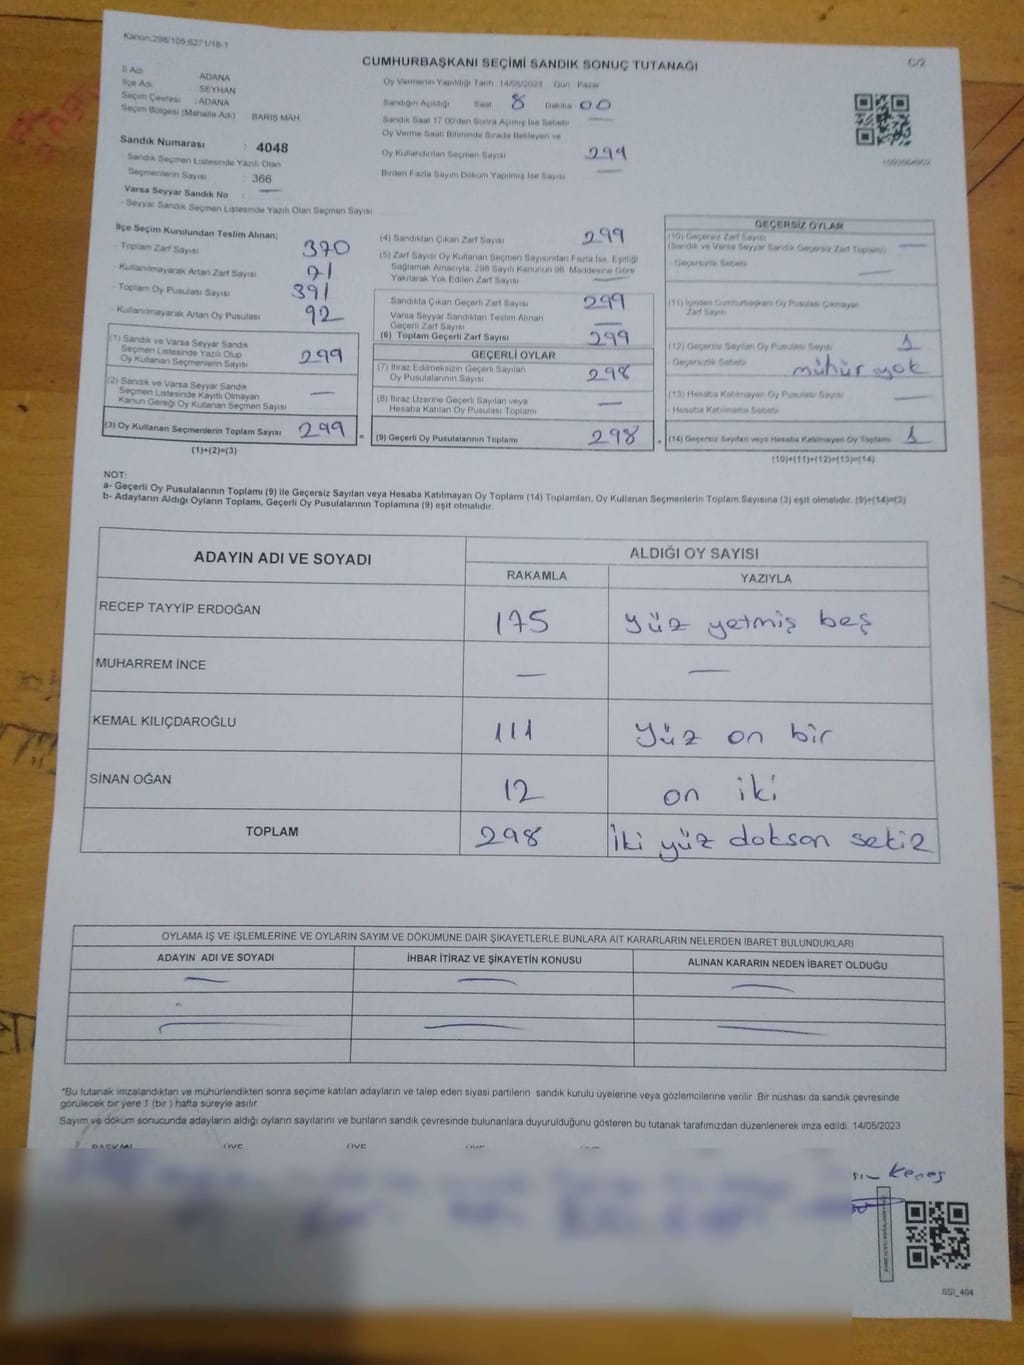 Kanun:298/105 6271/18-1
CUMHURBAŞKANI SEÇİMİ SANDIK SONUÇ TUTANAĞI
C/2
İl Adı ADANA
İlçe Adı SEYHAN
Seçim Çevresi : ADANA
Seçim Bölgesi (Mahalle Adı) BARIŞ MAH
Sandık Numarası : 4048
Sandık Seçmen Listesinde Yazılı Olan
Seçmenlerin Sayısı : 366
Varsa Seyyar Sandık No : —
Seyyar Sandık Seçmen Listesinde Yazılı Olan Seçmen Sayısı
Oy Vermenin Yapıldığı Tarih 14/05/2023 Gün Pazar
Sandığın Açıldığı Saat 8 Dakika 00
Sandık Saat 17.00'den Sonra Açılmış İse Sebebi —
Oy Verme Saati Bitiminde Sırada Bekleyen ve
Oy Kullandırılan Seçmen Sayısı 299
Birden Fazla Sayım Döküm Yapılmış İse Sayısı —
İlçe Seçim Kurulundan Teslim Alınan;
- Toplam Zarf Sayısı 370
- Kullanılmayarak Artan Zarf Sayısı 71
- Toplam Oy Pusulası Sayısı 391
- Kullanılmayarak Artan Oy Pusulası 92
(1) Sandık ve Varsa Seyyar Sandık
Seçmen Listesinde Yazılı Olup
Oy Kullanan Seçmenlerin Sayısı 299
(2) Sandık ve Varsa Seyyar Sandık
Seçmen Listesinde Kayıtlı Olmayan
Kanun Gereği Oy Kullanan Seçmen Sayısı —
(3) Oy Kullanan Seçmenlerin Toplam Sayısı 299
(1)+(2)=(3)
(4) Sandıktan Çıkan Zarf Sayısı 299
(5) Zarf Sayısı Oy Kullanan Seçmen Sayısından Fazla İse, Eşitliği
Sağlamak Amacıyla, 298 Sayılı Kanunun 98. Maddesine Göre
Yakılarak Yok Edilen Zarf Sayısı —
Sandıkta Çıkan Geçerli Zarf Sayısı 299
Varsa Seyyar Sandıktan Teslim Alınan
Geçerli Zarf Sayısı —
(6) Toplam Geçerli Zarf Sayısı 299
GEÇERLİ OYLAR
(7) İtiraz Edilmeksizin Geçerli Sayılan
Oy Pusulalarının Sayısı 298
(8) İtiraz Üzerine Geçerli Sayılan veya
Hesaba Katılan Oy Pusulası Toplamı —
= (9) Geçerli Oy Pusulalarının Toplamı 298
GEÇERSİZ OYLAR
(10) Geçersiz Zarf Sayısı
(Sandık ve Varsa Seyyar Sandık Geçersiz Zarf Toplamı) —
- Geçersizlik Sebebi —
(11) İçinden Cumhurbaşkanı Oy Pusulası Çıkmayan
Zarf Sayısı
(12) Geçersiz Sayılan Oy Pusulası Sayısı 1
Geçersizlik Sebebi mühür yok
(13) Hesaba Katılmayan Oy Pusulası Sayısı —
- Hesaba Katılmama Sebebi
(14) Geçersiz Sayılan veya Hesaba Katılmayan Oy Toplamı 1
(10)+(11)+(12)+(13)=(14)
NOT:
a- Geçerli Oy Pusulalarının Toplamı (9) ile Geçersiz Sayılan veya Hesaba Katılmayan Oy Toplamı (14) Toplamları, Oy Kullanan Seçmenlerin Toplam Sayısına (3) eşit olmalıdır. (9)+(14)=(3)
b- Adayların Aldığı Oyların Toplamı, Geçerli Oy Pusulalarının Toplamına (9) eşit olmalıdır.
ADAYIN ADI VE SOYADI ALDIĞI OY SAYISI
RAKAMLA YAZIYLA
RECEP TAYYİP ERDOĞAN 175 Yüz yetmiş beş
MUHARREM İNCE — —
KEMAL KILIÇDAROĞLU 111 Yüz on bir
SİNAN OĞAN 12 on iki
TOPLAM 298 İki yüz dokson sekiz
OYLAMA İŞ VE İŞLEMLERİNE VE OYLARIN SAYIM VE DÖKÜMÜNE DAİR ŞİKAYETLERLE BUNLARA AİT KARARLARIN NELERDEN İBARET BULUNDUKLARI
ADAYIN ADI VE SOYADI İHBAR İTİRAZ VE ŞİKAYETİN KONUSU ALINAN KARARIN NEDEN İBARET OLDUĞU
— — —
— — —
*Bu tutanak imzalandıktan ve mühürlendikten sonra seçime katılan adayların ve talep eden siyasi partilerin sandık kurulu üyelerine veya gözlemcilerine verilir. Bir nüshası da sandık çevresinde
görülecek bir yere 1 (bir) hafta süreyle asılır.
Sayım ve döküm sonucunda adayların aldığı oyların sayılarını ve bunların sandık çevresinde bulunanlara duyurulduğunu gösteren bu tutanak tarafımızdan düzenlenerek imza edildi. 14/05/2023
BAŞKAN ÜYE ÜYE
Keneş
SSI_404